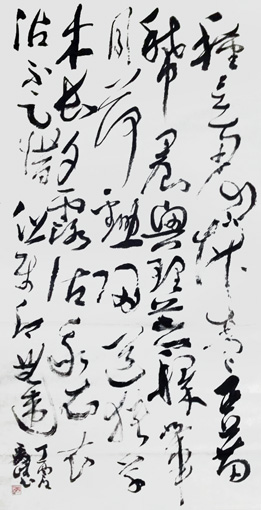 種豆南山下草盛豆苗
稀晨興理荒穢帶
月荷鋤歸道狹草
木長夕露沾我衣衣
沾不足惜但使願無違
丁酉